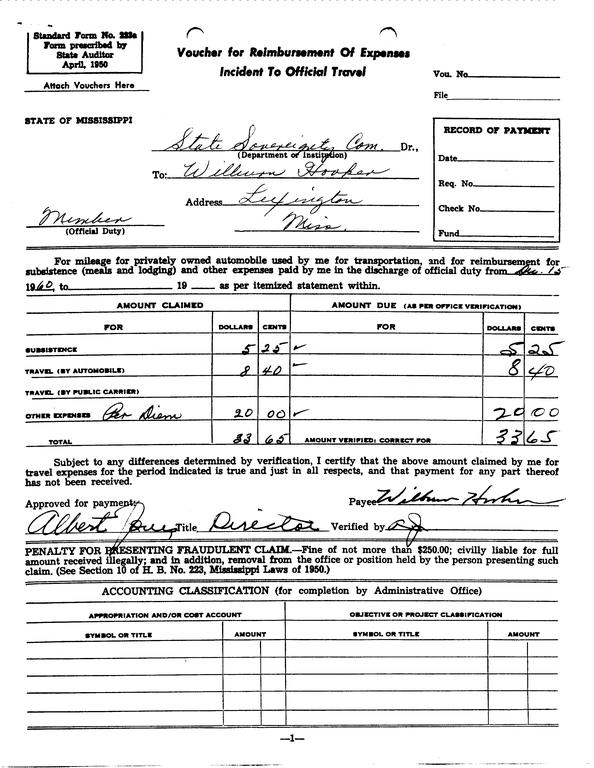 Standard Form No. 223a
Form prescribed by
State Auditor
April, 1950
Attach Vouchers Here
Voucher for Reimbursement Of Expenses
Incident To Official Travel
Vou. No.
File
STATE OF MISSISSIPPI
State Sovereignty Com. Dr.,
(Department or Institution)
To: Wilburn Hooker
Address Lexington
Miss.
Member
(Official Duty)
RECORD OF PAYMENT
Date
Req. No.
Check No.
Fund
For mileage for privately owned automobile used by me for transportation, and for reimbursement for
subsistence (meals and lodging) and other expenses paid by me in the discharge of official duty from Dec. 15
1960, to 19 as per itemized statement within.
AMOUNT CLAIMED AMOUNT DUE (AS PER OFFICE VERIFICATION)
FOR DOLLARS CENTS FOR DOLLARS CENTS
SUBSISTENCE 5 25 ✓ 5 25
TRAVEL (BY AUTOMOBILE) 8 40 ✓ 8 40
TRAVEL (BY PUBLIC CARRIER)
OTHER EXPENSES Per Diem 20 00 ✓ 20 00
TOTAL 33 65 AMOUNT VERIFIED; CORRECT FOR 33 65
Subject to any differences determined by verification, I certify that the above amount claimed by me for
travel expenses for the period indicated is true and just in all respects, and that payment for any part thereof
has not been received.
Approved for payment: Payee Wilburn Hooker
Albert Jones Title Director Verified by
PENALTY FOR PRESENTING FRAUDULENT CLAIM.—Fine of not more than $250.00; civilly liable for full
amount received illegally; and in addition, removal from the office or position held by the person presenting such
claim. (See Section 10 of H. B. No. 223, Mississippi Laws of 1950.)
ACCOUNTING CLASSIFICATION (for completion by Administrative Office)
APPROPRIATION AND/OR COST ACCOUNT OBJECTIVE OR PROJECT CLASSIFICATION
SYMBOL OR TITLE AMOUNT SYMBOL OR TITLE AMOUNT
—1—